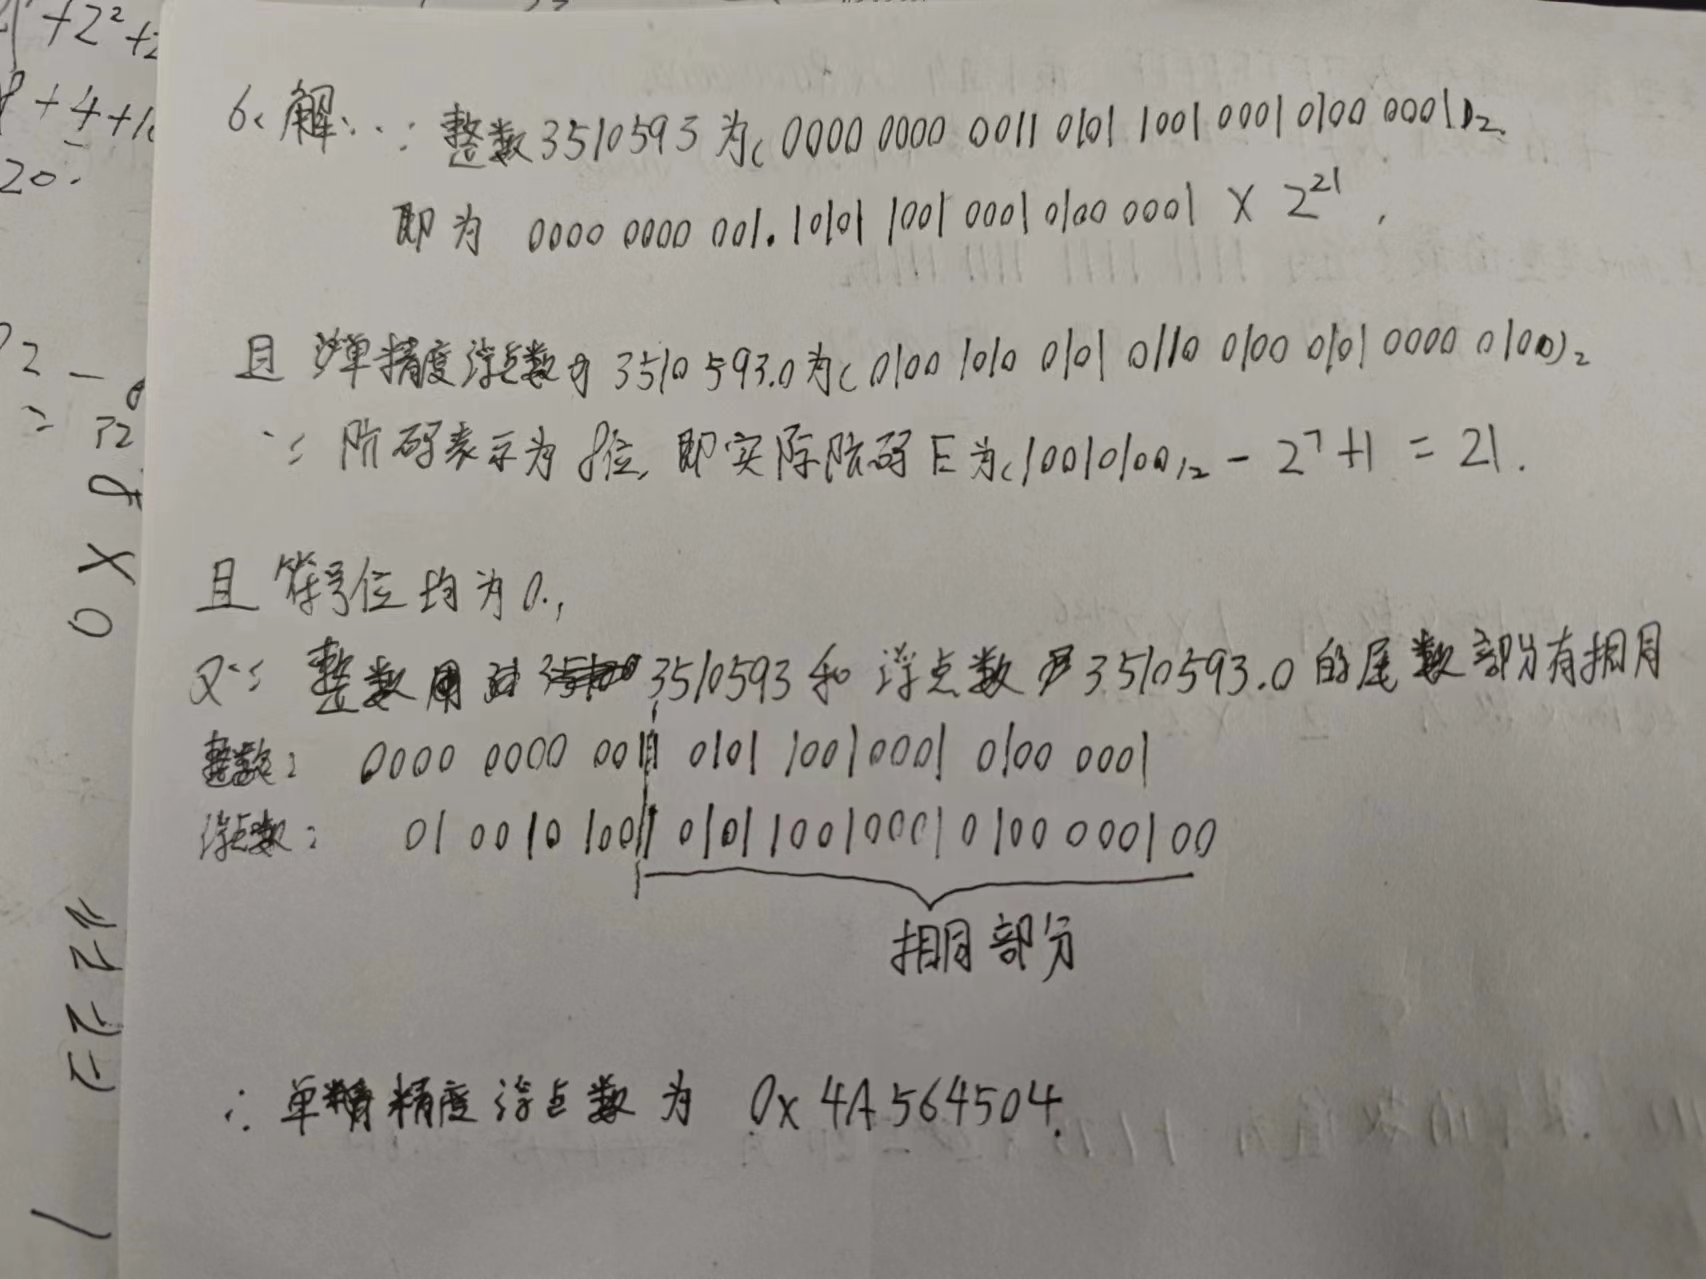 +2²+2
8+4+1
20.
6、解：∵整数3510593为(0000 0000 0011 0101 1001 0001 0100 0001)₂.
即为 0000 0000 001.10101 1001 0001 0100 0001 × 2²¹,
且 单精度浮点数 3510593.0为(0100 1010 0101 0110 0100 0101 0000 0100)₂
∵ 阶码表示为8位, 即实际阶码E为(10010100)₂ - 2⁷+1 = 21.
且 符号位均为0.,
又∵ 整数 3510593和浮点数 3510593.0的尾数部分有相同
整数: 0000 0000 0011 0101 1001 0001 0100 0001
浮点数: 01 0010 1001 0101 1001 0001 0100 0001 00
相同部分
∴ 单精度浮点数为 0x4A564504.
0X8